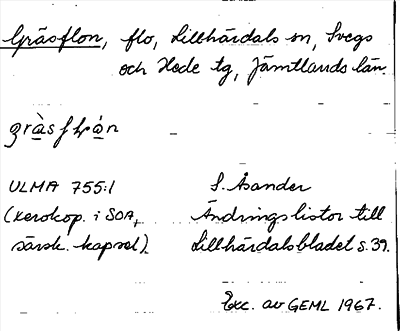 Gräsflon, flo, Lillhärdals sn, Svegs
och Hede tg, Jämtlands län.
gràsflọn
ULMA 755:1 S. Åsander
(xerokop. i SOA, Ändringslistor till
särsk. kapsel). Lillhärdalsbladet s. 39.
Exc. av GEML 1967.